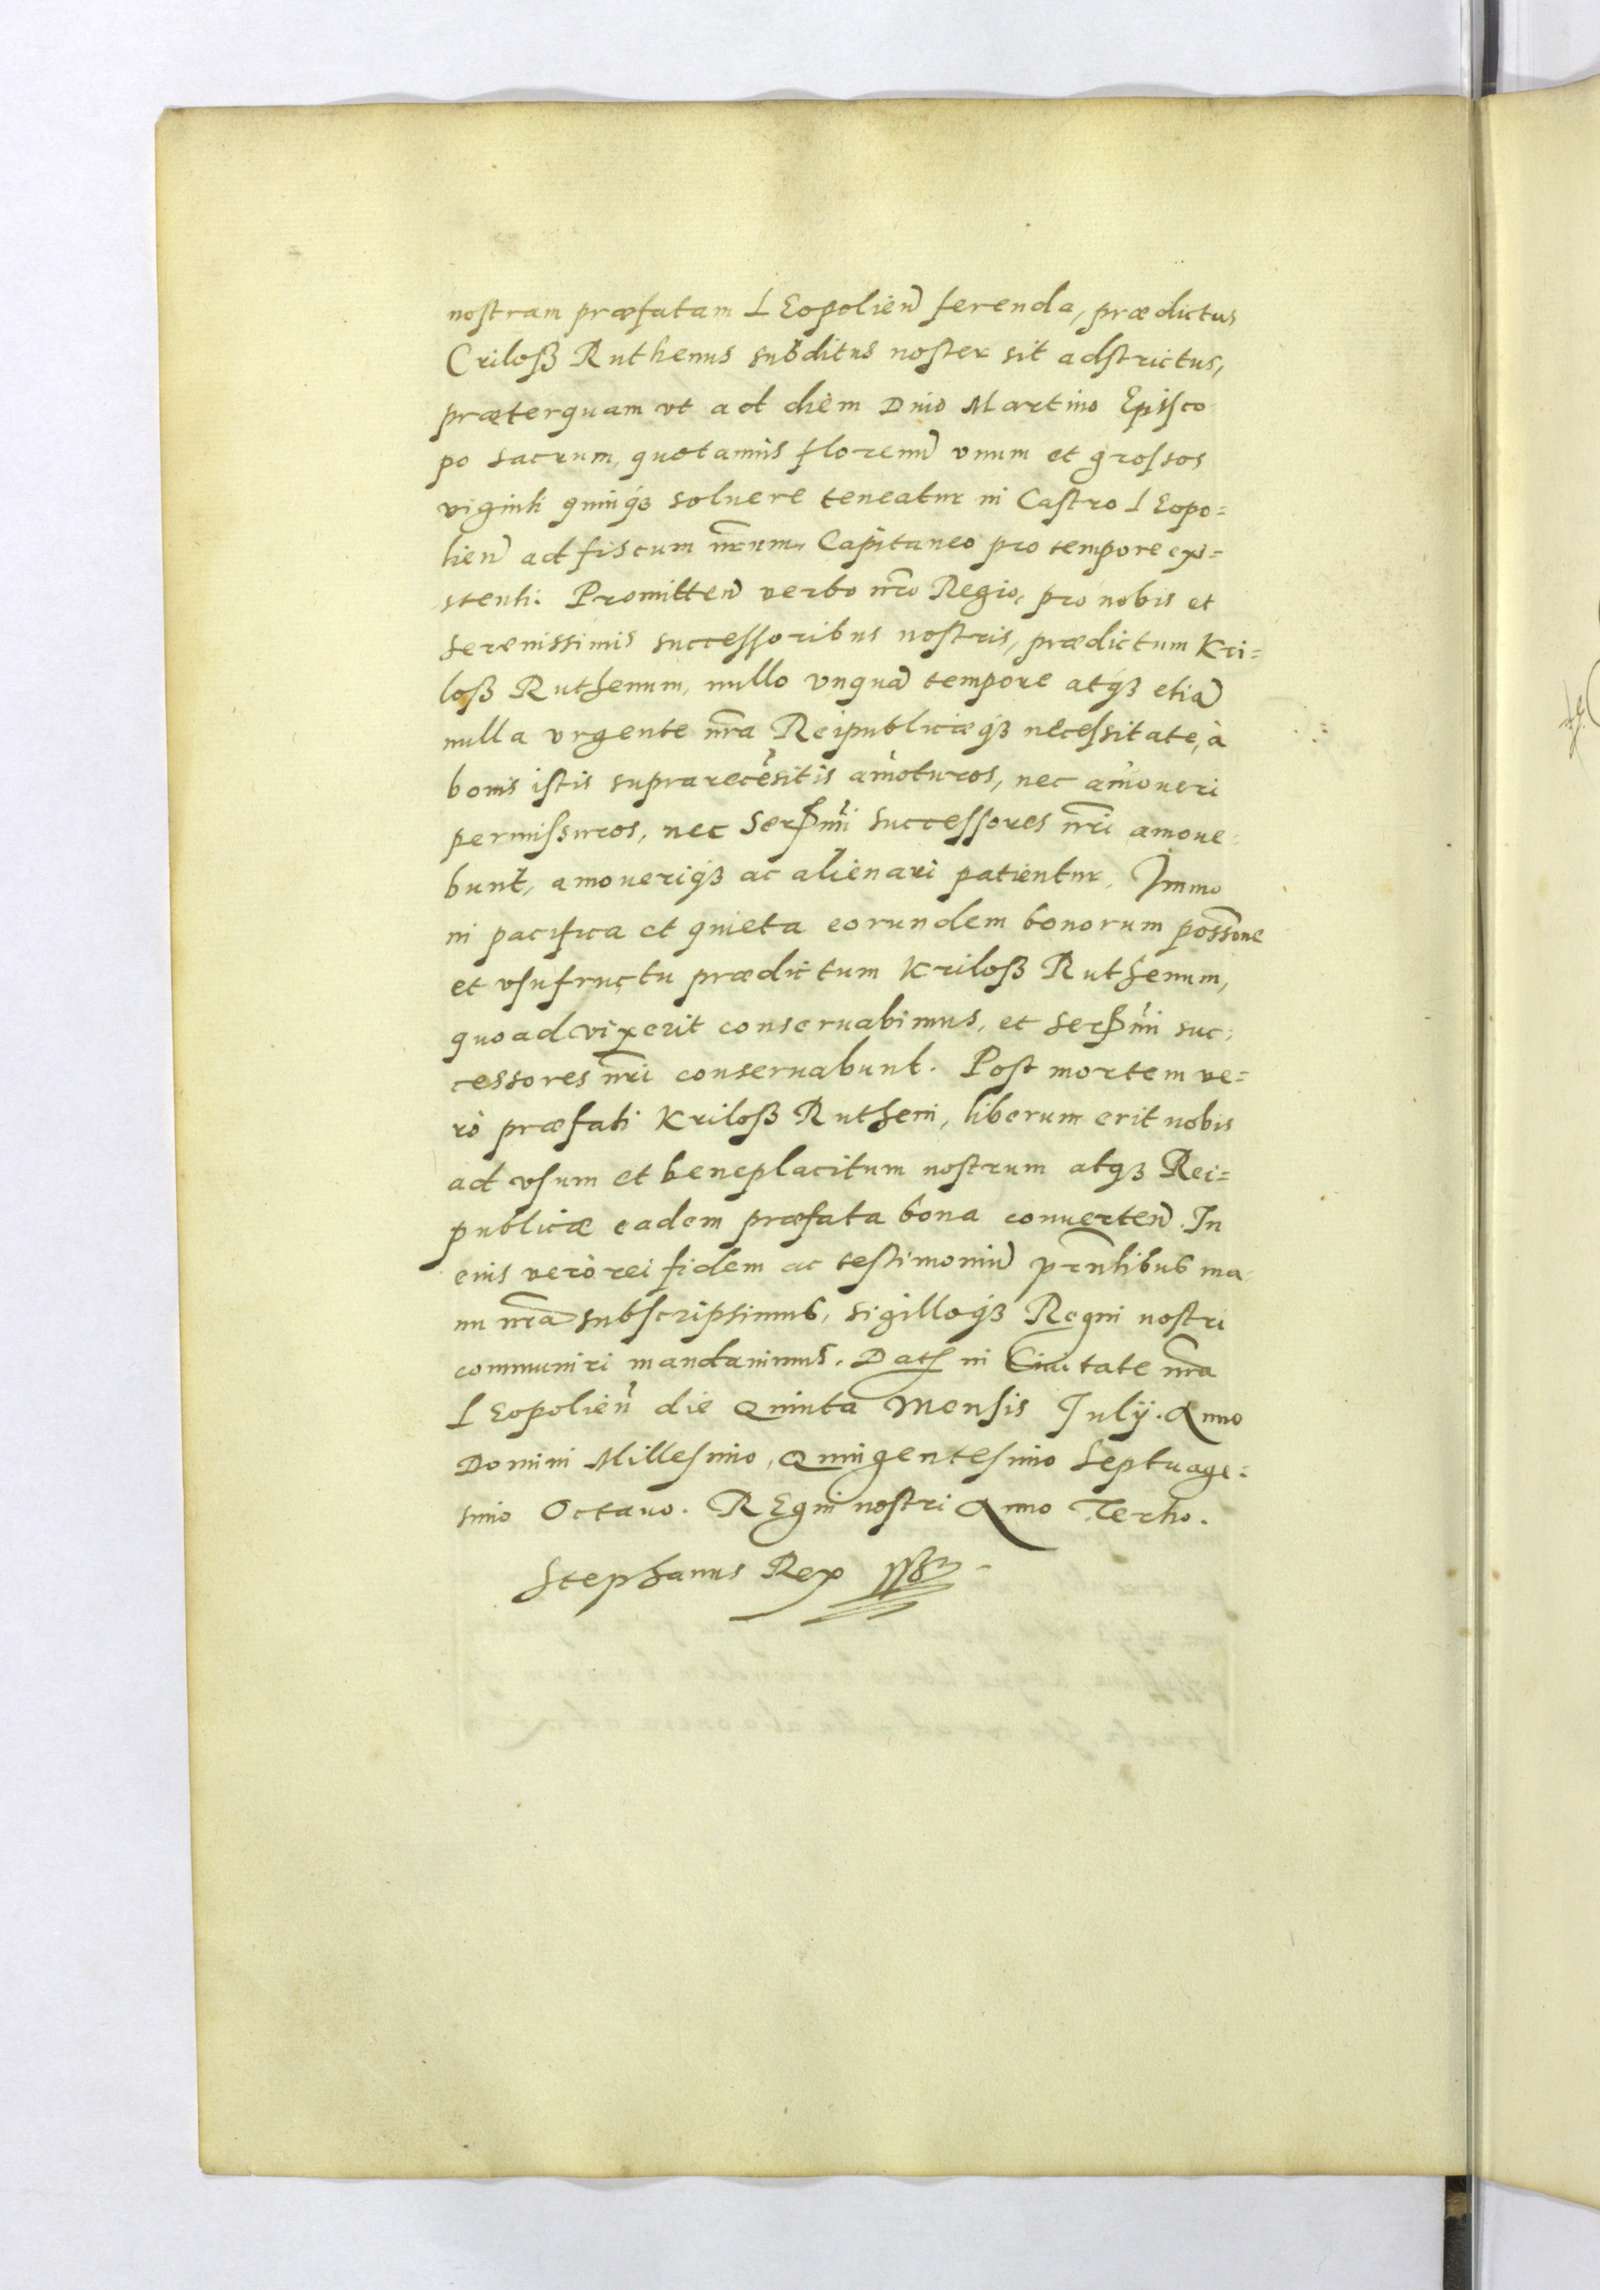 nostram præfatam LEopolien̄ ferenda, prædictus
Criloß Ruthenus subditus noster sit adstrictus,
præterquam vt ad diem Diuo Martino Episco
po sacrum, quotannis florenū vnum et grossos
viginti quinq́ꝫ soluere teneatur in Castro LEopo=
lien̄ ad fiscum nr̄um, Capitaneo pro tempore exi=
stenti. Promitten̄ verbo nr̄o Regio, pro nobis et
serenissimis successoribus nostris, prædictum Kri=
loß Ruthenum, nullo vnquā tempore atq́ꝫ etiā
nulla vrgente nr̄a Reipublicæq́ꝫ necessitate, à
bonis istis suprarecēsitis amoturos, nec amoueri
permissuros, nec Serꝰmi successores nr̄i amoue
bunt, amoueriq́ꝫ ac alienari patientur, Immo
in pacifica et quieta eorundem bonorum possōne
et vsufructu prædictum Kriloß Ruthenum,
quoad vixerit conseruabimus, et serꝰmi suc=
cessores nr̄i conseruabunt. Post mortem ve=
rò præfati Kriloß Rutheni, liberum erit nobis
ad vsum et beneplacitum nostrum atq́ꝫ Rei=
publicæ eadem præfata bona conuerten̄. In
eius verò rei fidem ac testimoniū pr̄ntibus ma
nu nr̄a subscripsimus, sigilloq́ꝫ Regni nostri
communiri mandauimus. Dat. in Ciuitate nr̄a
LEopolien̄ die Quinta Mensis Julÿ. Anno
Domini Millesimo, Quingentesimo Septuage=
simo Octauo. REgni nostri Anno Tertio.
Stephanus Rex